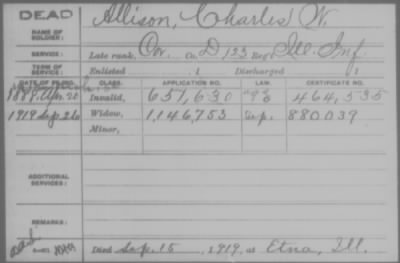 DEAD
NAME OF SOLDIER: Allison, Charles W.
SERVICE: Late rank, Cor. Co. D, 123 Reg't Ill. Inf.
TERM OF SERVICE: Enlisted , 1 Discharged , 1
DATE OF FILING. CLASS. APPLICATION NO. LAW. CERTIFICATE NO.
1888, Apr. 20 Invalid, 651,630 464,535
1919 Sep. 26 Widow, 1,146,753 Sep. 880039
Minor,
ADDITIONAL SERVICES:
REMARKS:
Died Sep. 15, 1919, at Etna, Ill.